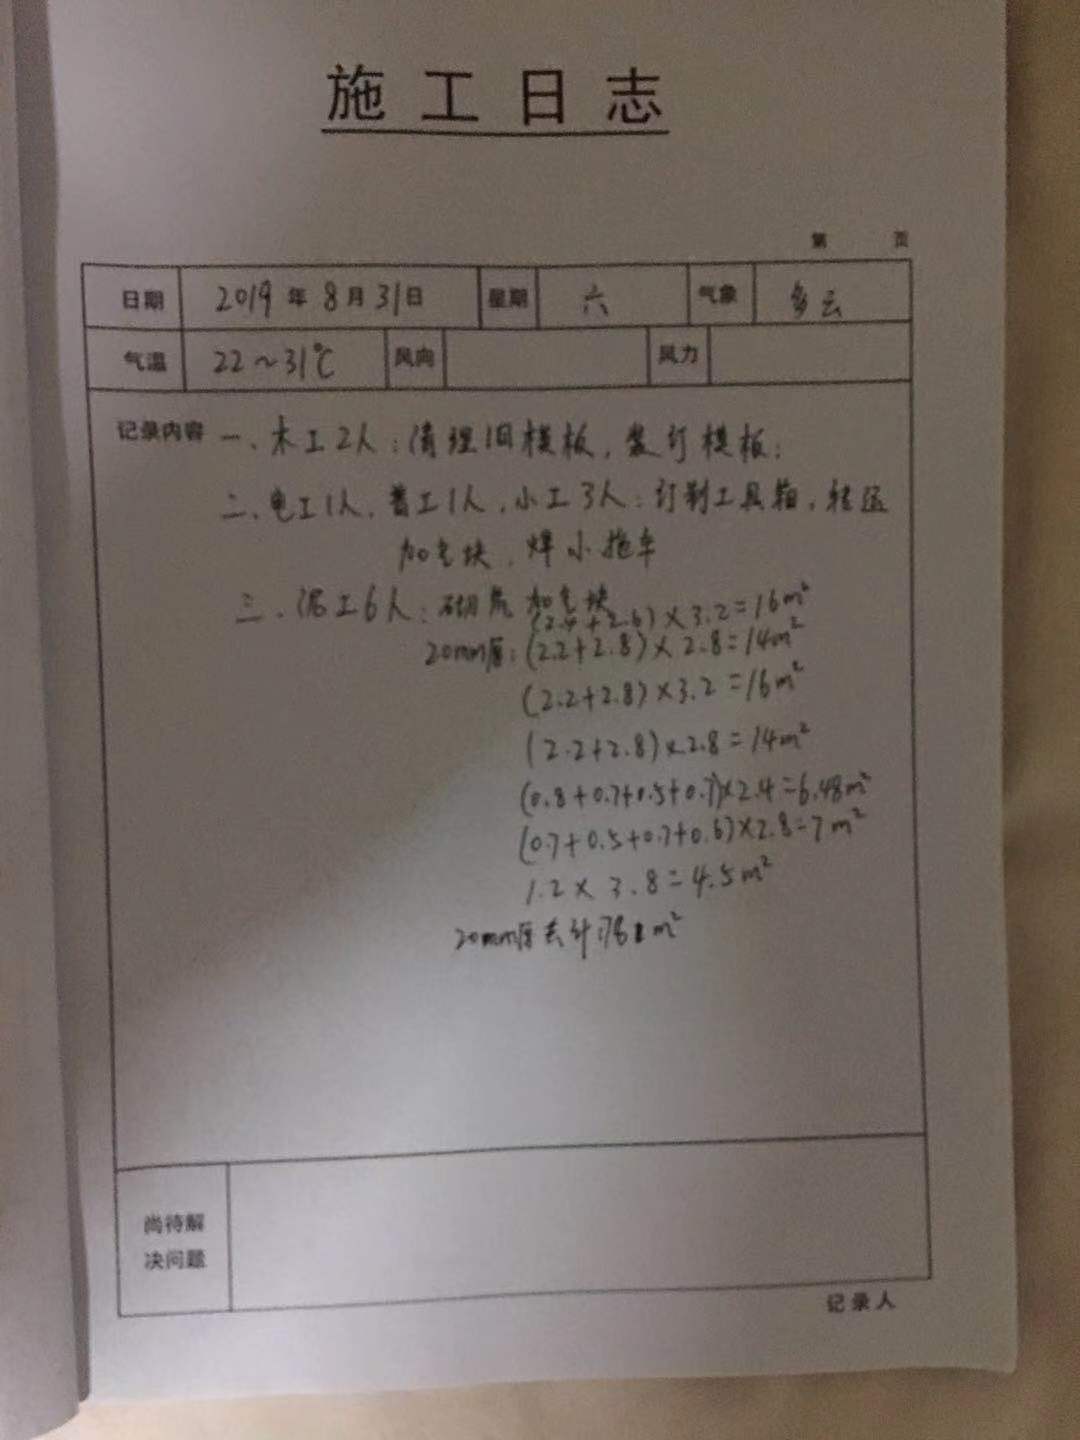 施工日志
第 页
日期 2019年8月31日 星期 六 气象 多云
气温 22~31℃ 风向 风力
记录内容 一、木工2人：清理旧模板，装订模板；
二、电工1人、普工1人、小工3人：订制工具箱，转运
加气块，焊小拖车
三、泥工6人：砌筑加气块
(2.4+2.6)×3.2=16m²
20mm厚：(2.2+2.8)×2.8=14m²
(2.2+2.8)×3.2=16m²
(2.2+2.8)×2.8=14m²
(0.8+0.7+0.5+0.7)×2.4=6.48m²
(0.7+0.5+0.7+0.6)×2.8=7m²
1.2×3.8=4.5m²
20mm厚共计 m²
尚待解
决问题
记录人